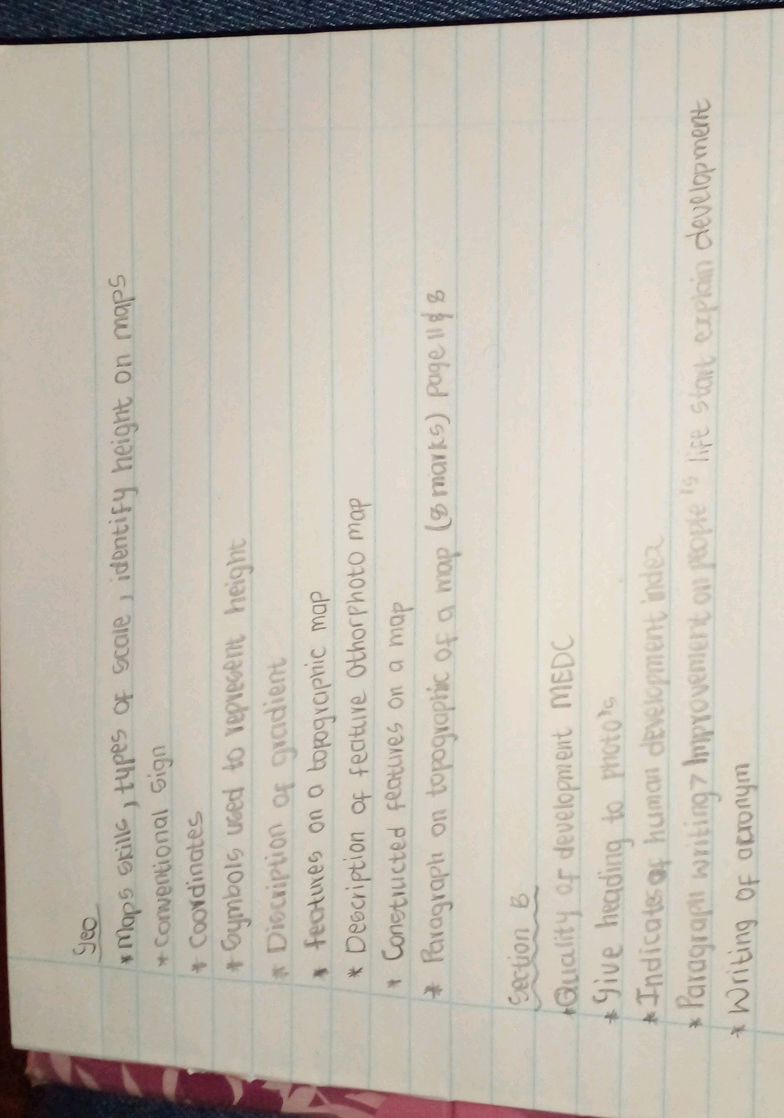 Geo
* Maps skills, types of scale, identify height on maps
* Conventional sign
* Coordinates
* Symbols used to represent height
* Discription of gradient
* features on a topographic map
* Description of feature Othorphoto map
* Constructed features on a map
* Paragraph on topographic of a map (8 marks) page 11 & 8
Section B
* Quality of development MEDC
* Give heading to photo's
* Indicates of human development index
* Paragraph writing > Improvement on people's life start explain development
* Writing of acronym